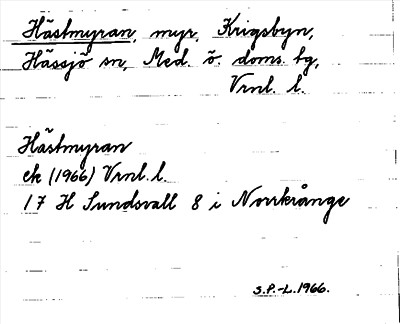 Hästmyran, myr, Krigsbyn,
Hässjö sn, Med. ö. doms. tg,
Vrnl. l.
Hästmyran
ek (1966) Vrnl. l.
17 H Sundsvall 8 i Norrkrånge
S.P.-L.1966.